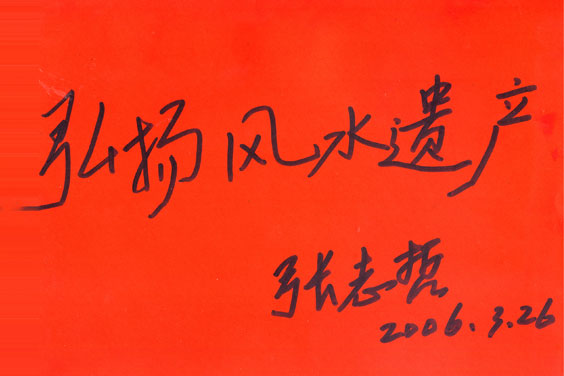 弘扬风水遗产
张志哲
2006.3.26